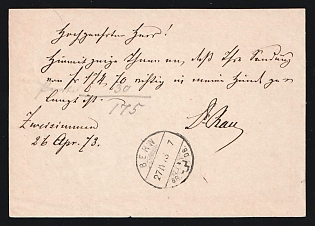 Hochgeehrter Herr!
Hiermit zeige Ihnen an, daß Ihre Sendung
von fr 174.70 richtig in meine Hände ge=
langt ist.
30
175
Zweisimmen
26 Apr. 73.
Dr Rau
BERN
27 IV 73 7